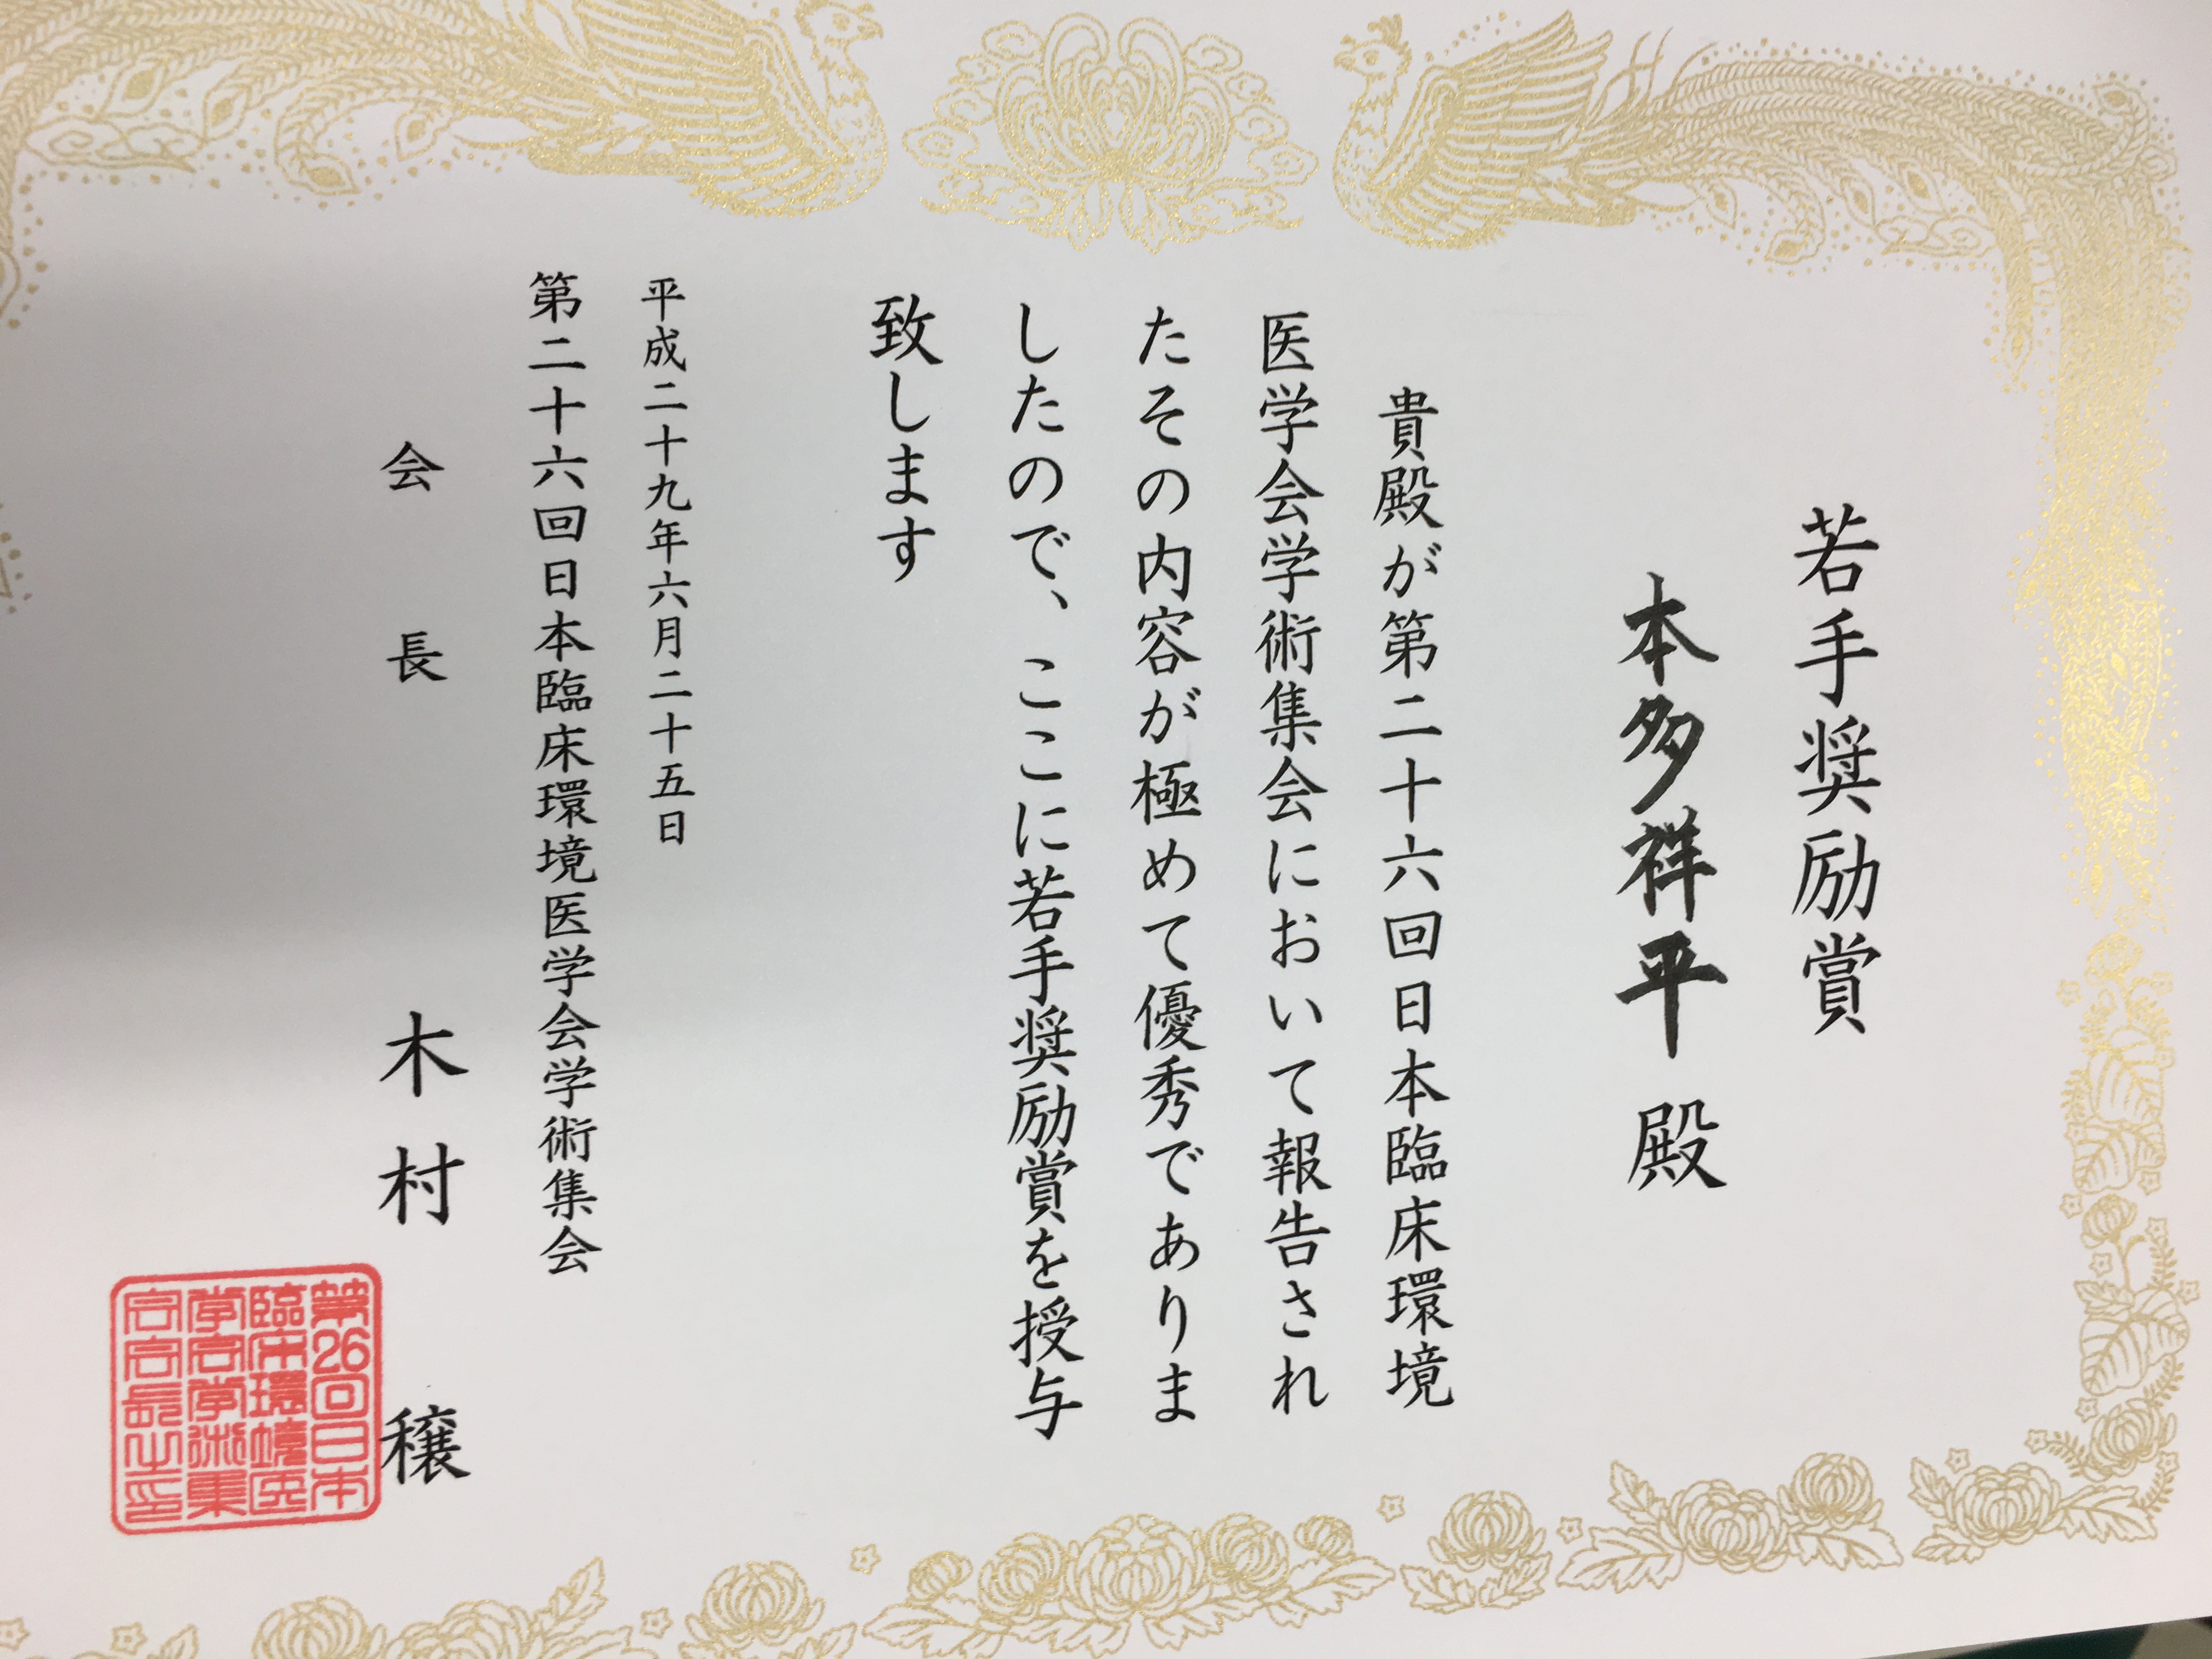 若手奨励賞
本多祥平 殿
貴殿が第二十六回日本臨床環境
医学会学術集会において報告され
たその内容が極めて優秀でありま
したので、ここに若手奨励賞を授与
致します
平成二十九年六月二十五日
第二十六回日本臨床環境医学会学術集会
会長 木村 穣
第26回日本
臨床環境医
学会学術集
会会長之印